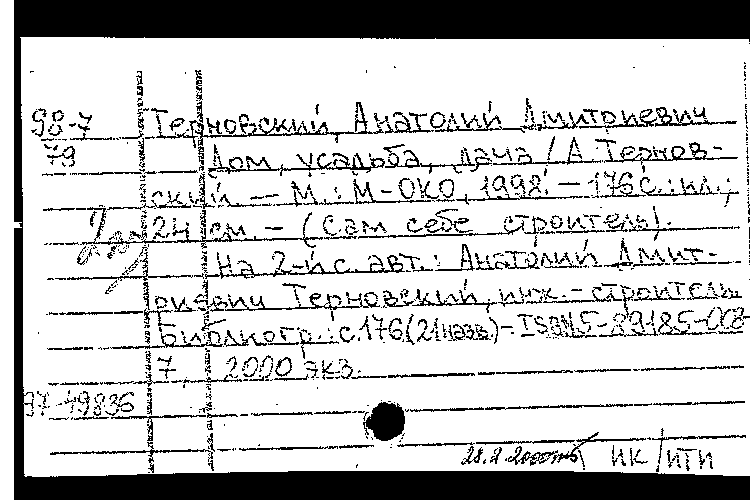 98-7 Терновский, Анатолий Дмитриевич
79 Дом, усадьба, дача / А. Тернов-
ский. — М.: М-ОКО, 1998. — 176 с.: ил.;
24 см. — (Сам себе строитель).
На 2-й с. авт.: Анатолий Дмит-
риевич Терновский, инж.-строитель.
Библиогр.: с. 176 (21 назв.) — ISBN 5-89185-008-
7, 2000 экз.
97-49836
ИК / ИТИ